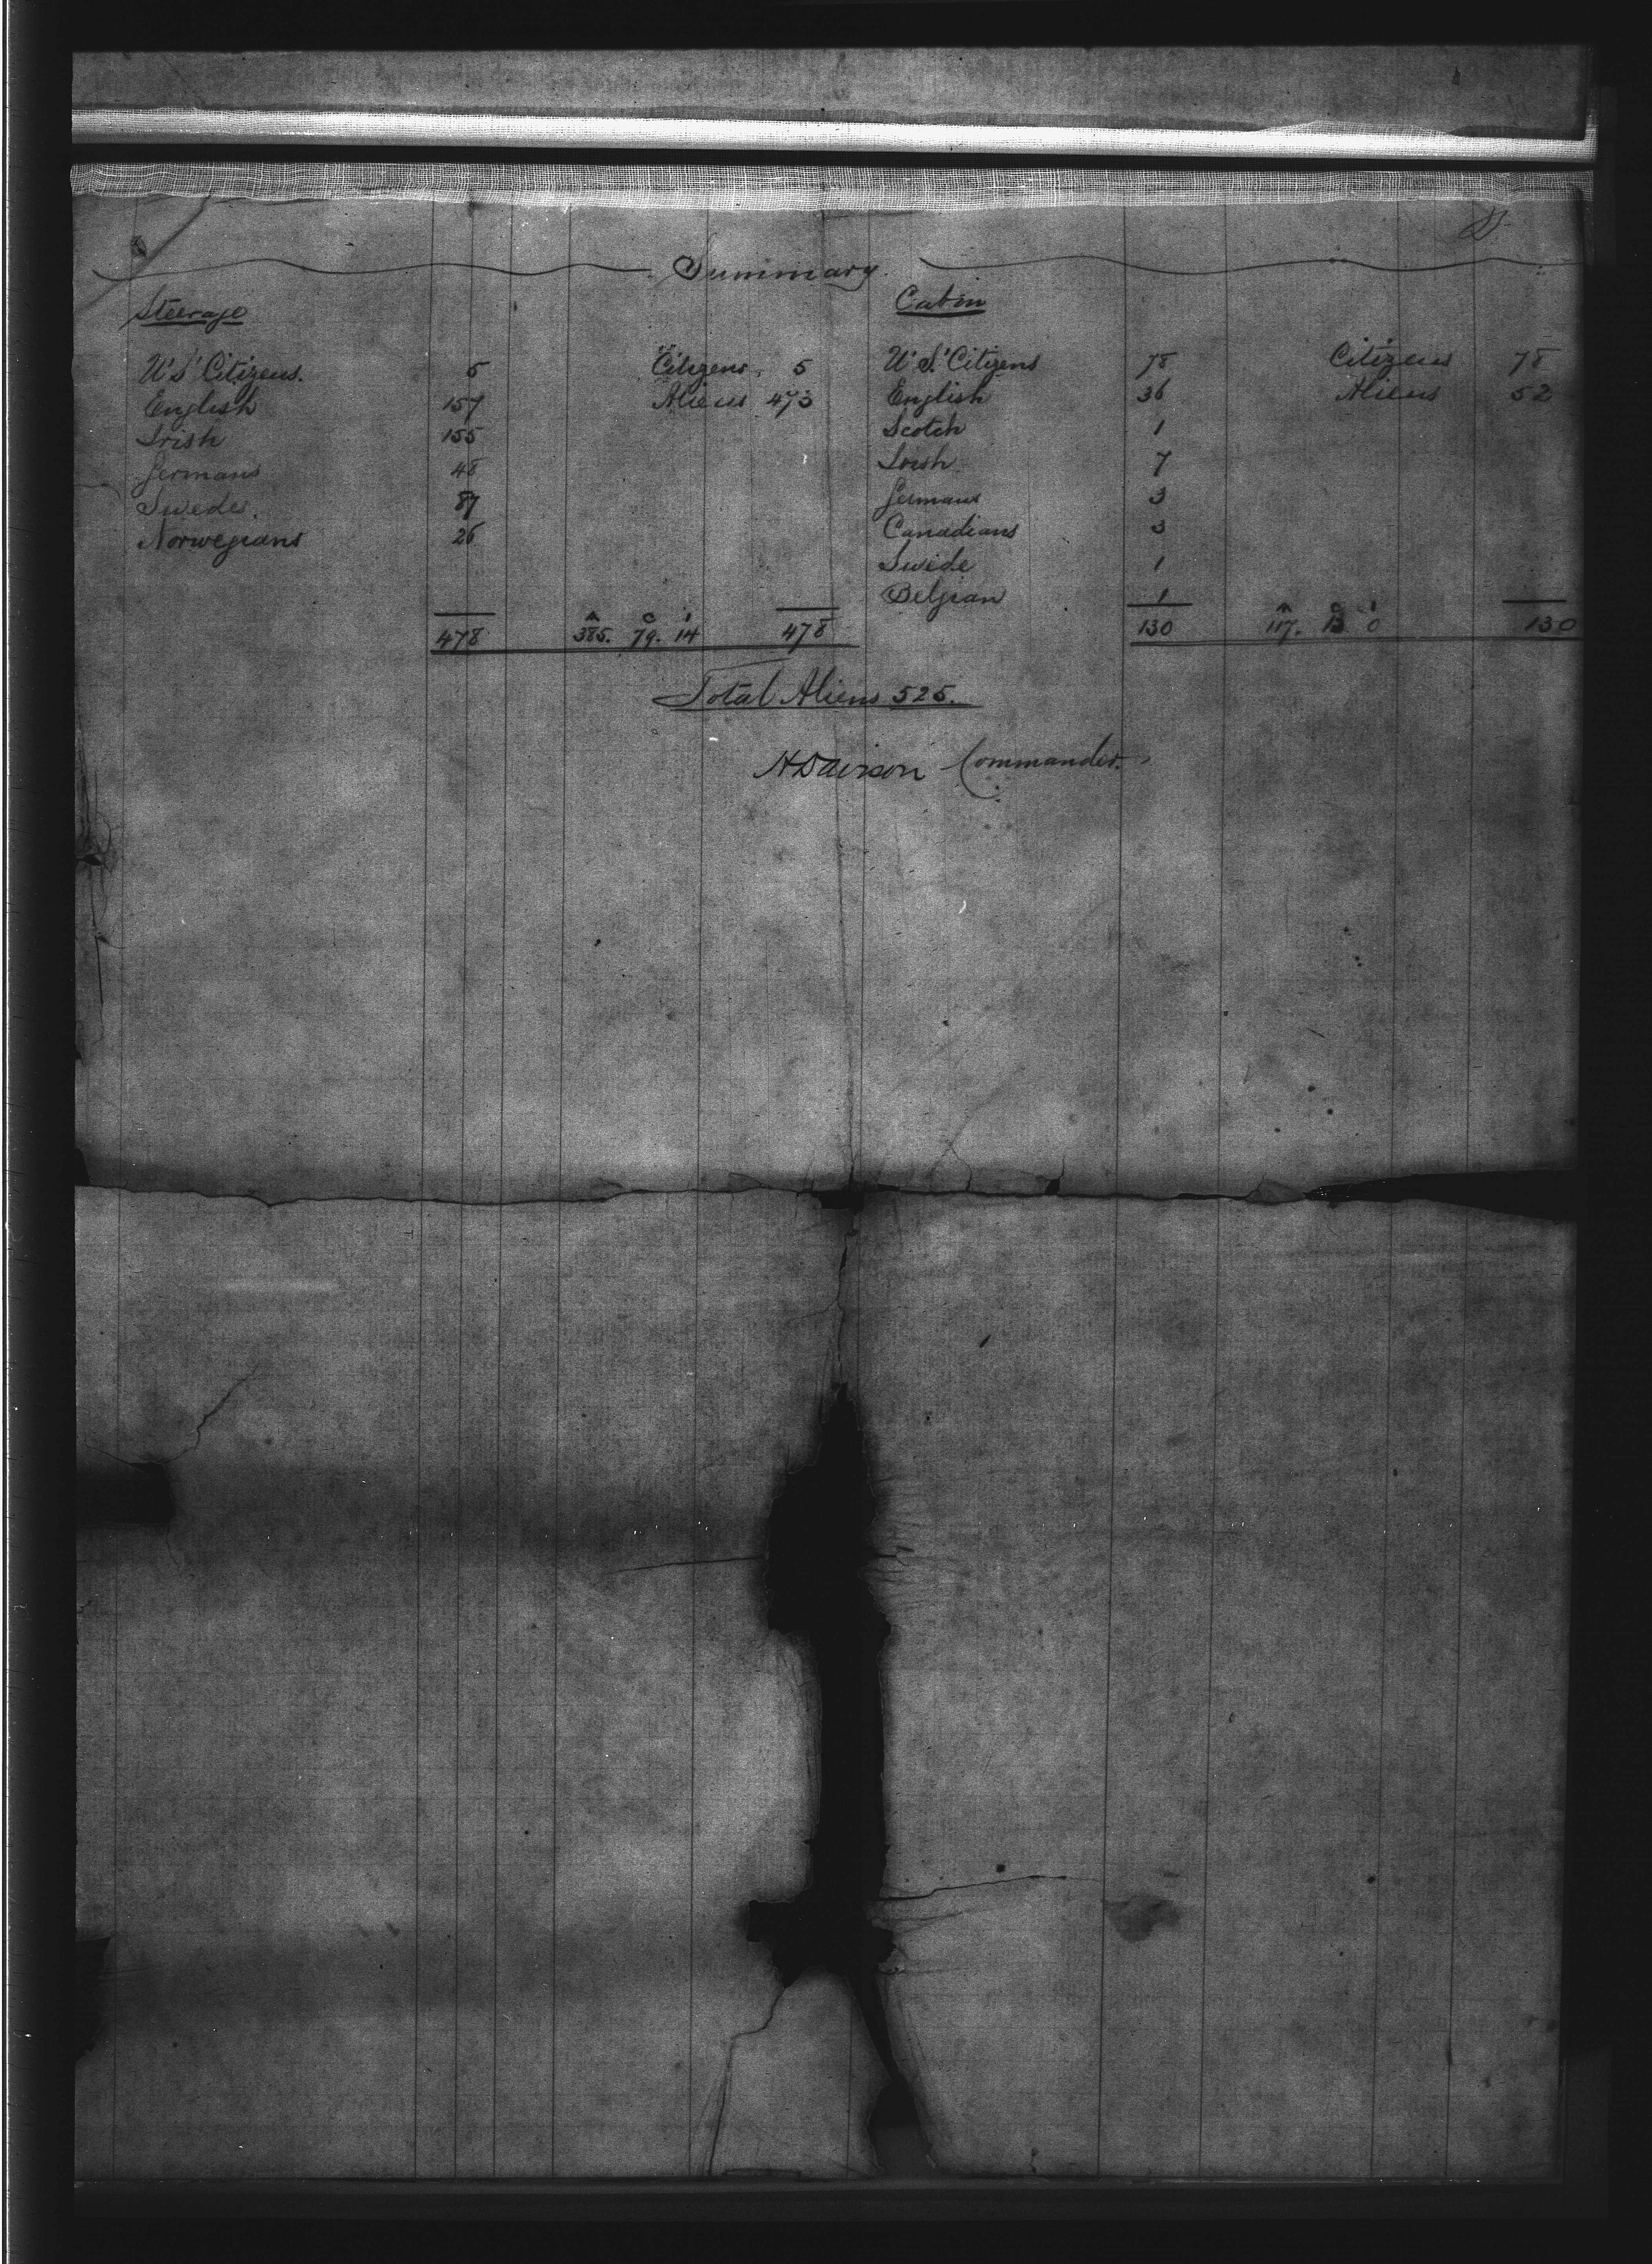 Summary.
Steerage
U.S. Citizens. 5 Citizens. 5
English 157 Aliens 473
Irish 155
Germans 48
Swedes. 87
Norwegians 26
A C I
478 385. 79. 14 478
Cabin
U.S. Citizens 78 Citizens 78
English 36 Aliens 52
Scotch 1
Irish 7
Germans 3
Canadians 3
Swede 1
Belgian 1
A C I
130 117. 13 0 130
Total Aliens 525.
Commander.